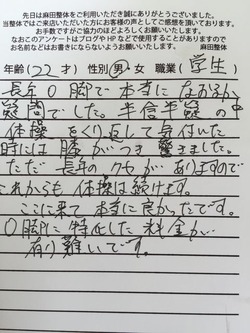 先日は麻田整体をご利用いただいて誠にありがとうございました。
当整体ではご来店いただいた方にお客様の声としてご感想を頂いております。
お手数ですがご協力のほどよろしくお願いいたします。
なおこのアンケートはブログやHPなどで使用することがありますので
お名前などはお書きにならないようお願いいたします。
麻田整体
年齢(22才) 性別(男・女 職業(学生)
長年O脚で本当になおるか
疑問でした。半信半疑の中
体操をくり返して気付いた
時には膝がつき驚きました。
ただ長年のクセがありますので
これからも体操は続けます。
ここに来て本当に良かったです。
O脚に特化した料金が
有り難いです。